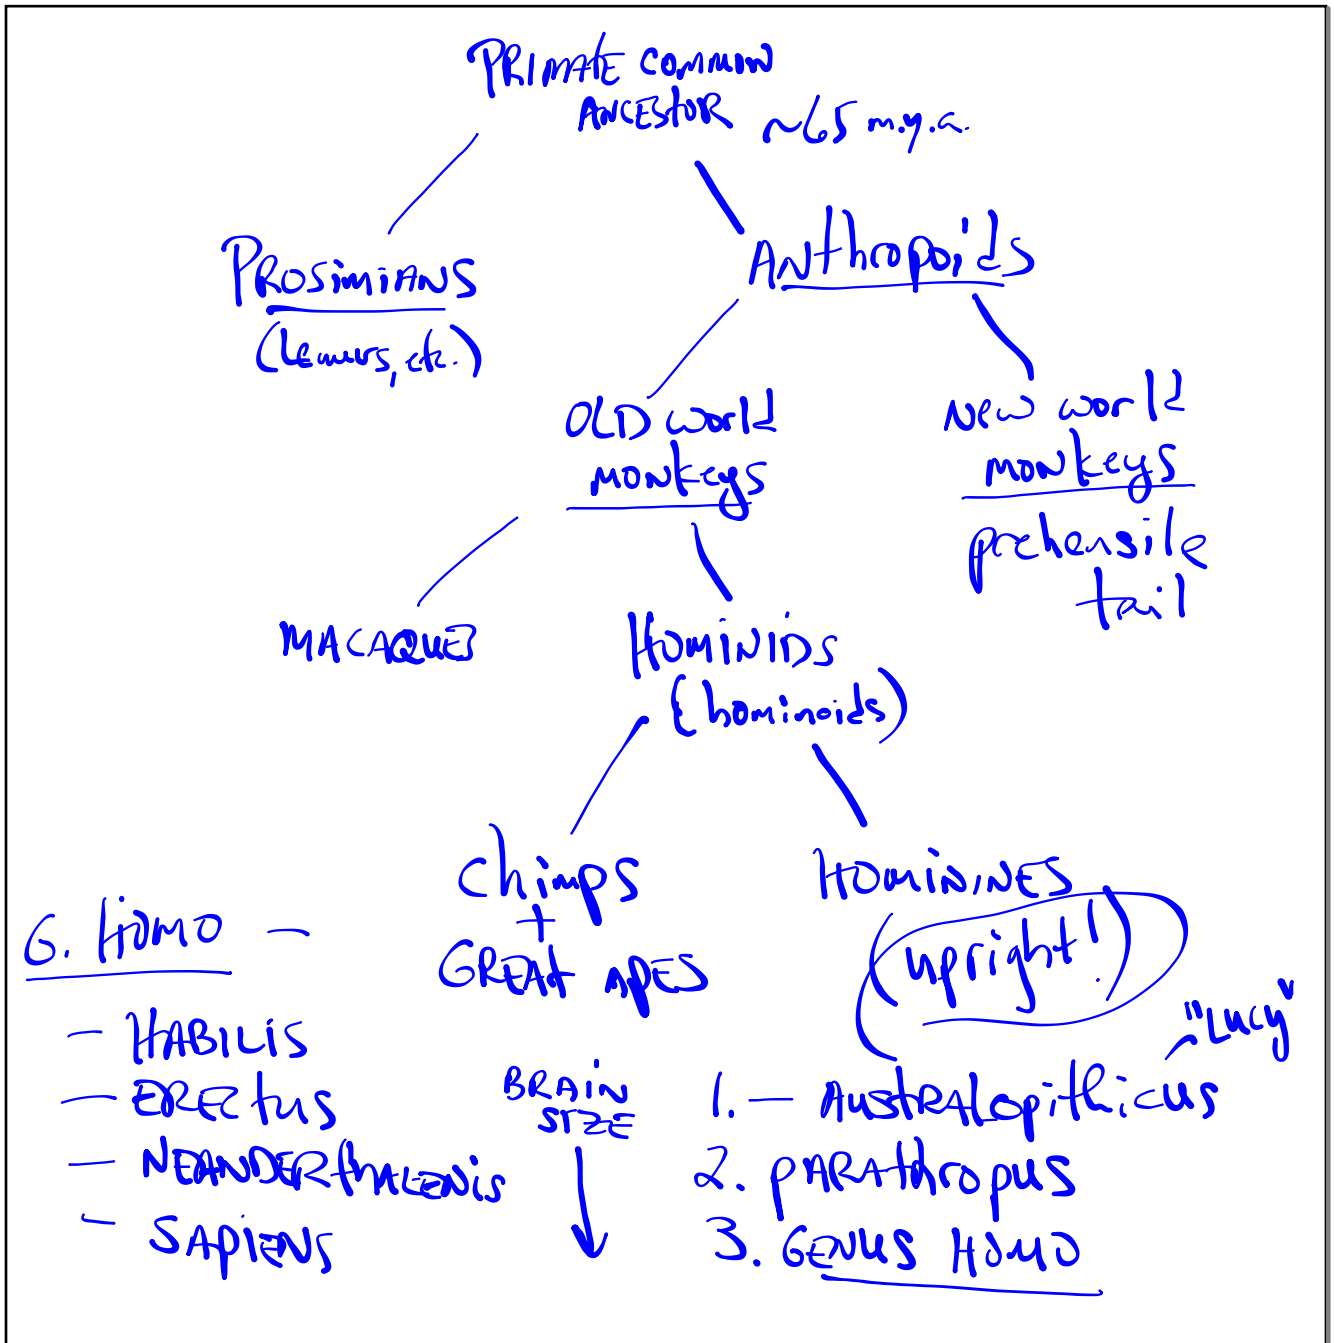 PRIMATE COMMON
ANCESTOR ~65 m.y.a.
PROSIMIANS
(Lemurs, etc.)
ANthropoids
OLD world
monkeys
New world
monkeys
prehensile
tail
MACAQUES
HOMINIDS
(hominoids)
Chimps
+
GREAT APES
HOMININES
(upright!)
"Lucy"
BRAIN
SIZE
1. — AustRALopithicus
2. PARAthropus
3. GENUS HOMO
G. HOMO —
— HABILIS
— ERECtus
— NEANDERthALENis
— SAPIENS